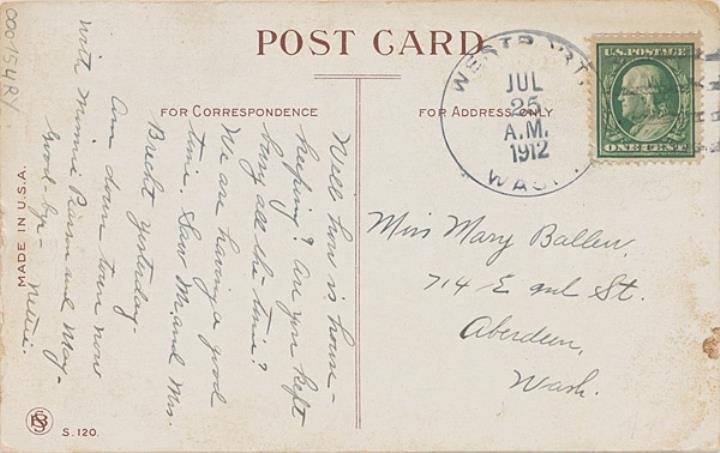 00154RY
POST CARD
FOR CORRESPONDENCE
FOR ADDRESS ONLY
WESTPORT,
JUL
25
A.M.
1912
WASH.
U.S. POSTAGE
ONE CENT
Well how is house-
keeping? are you kept
busy all the time?
We are having a good
time. Saw Mr. and Mrs.
Brecht yesterday.
Am down town now
with Minnie Pierson and May-
Good-bye-
Nettie.
Miss Mary Ballew,
714 E 2nd St.
Aberdeen,
Wash.
MADE IN U.S.A.
S. 120.